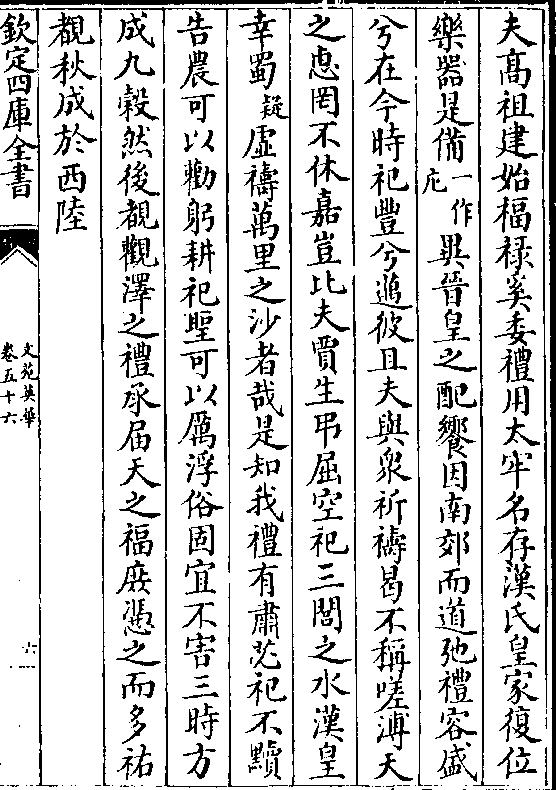 夫髙祖建始福禄奚委禮用太牢名存漢氏皇家復位
樂器是備一作庀異晉皇之配饗因南郊而道弛禮容盛
兮在今時祀豐兮邁彼且夫與衆祈禱曷不稱嗟溥天
之惠罔不休嘉豈比夫賈生弔屈空祀三閭之水漢皇
幸蜀疑虛禱萬里之沙者哉是知我禮有肅苾祀不黷
告農可以勸躬耕祀聖可以厲浮俗固宜不害三時方
成九穀然後覩觀澤之禮承届天之福庻憑之而多祐
覩秋成於西陸
欽定四庫全書
文苑英華
卷五十六
六